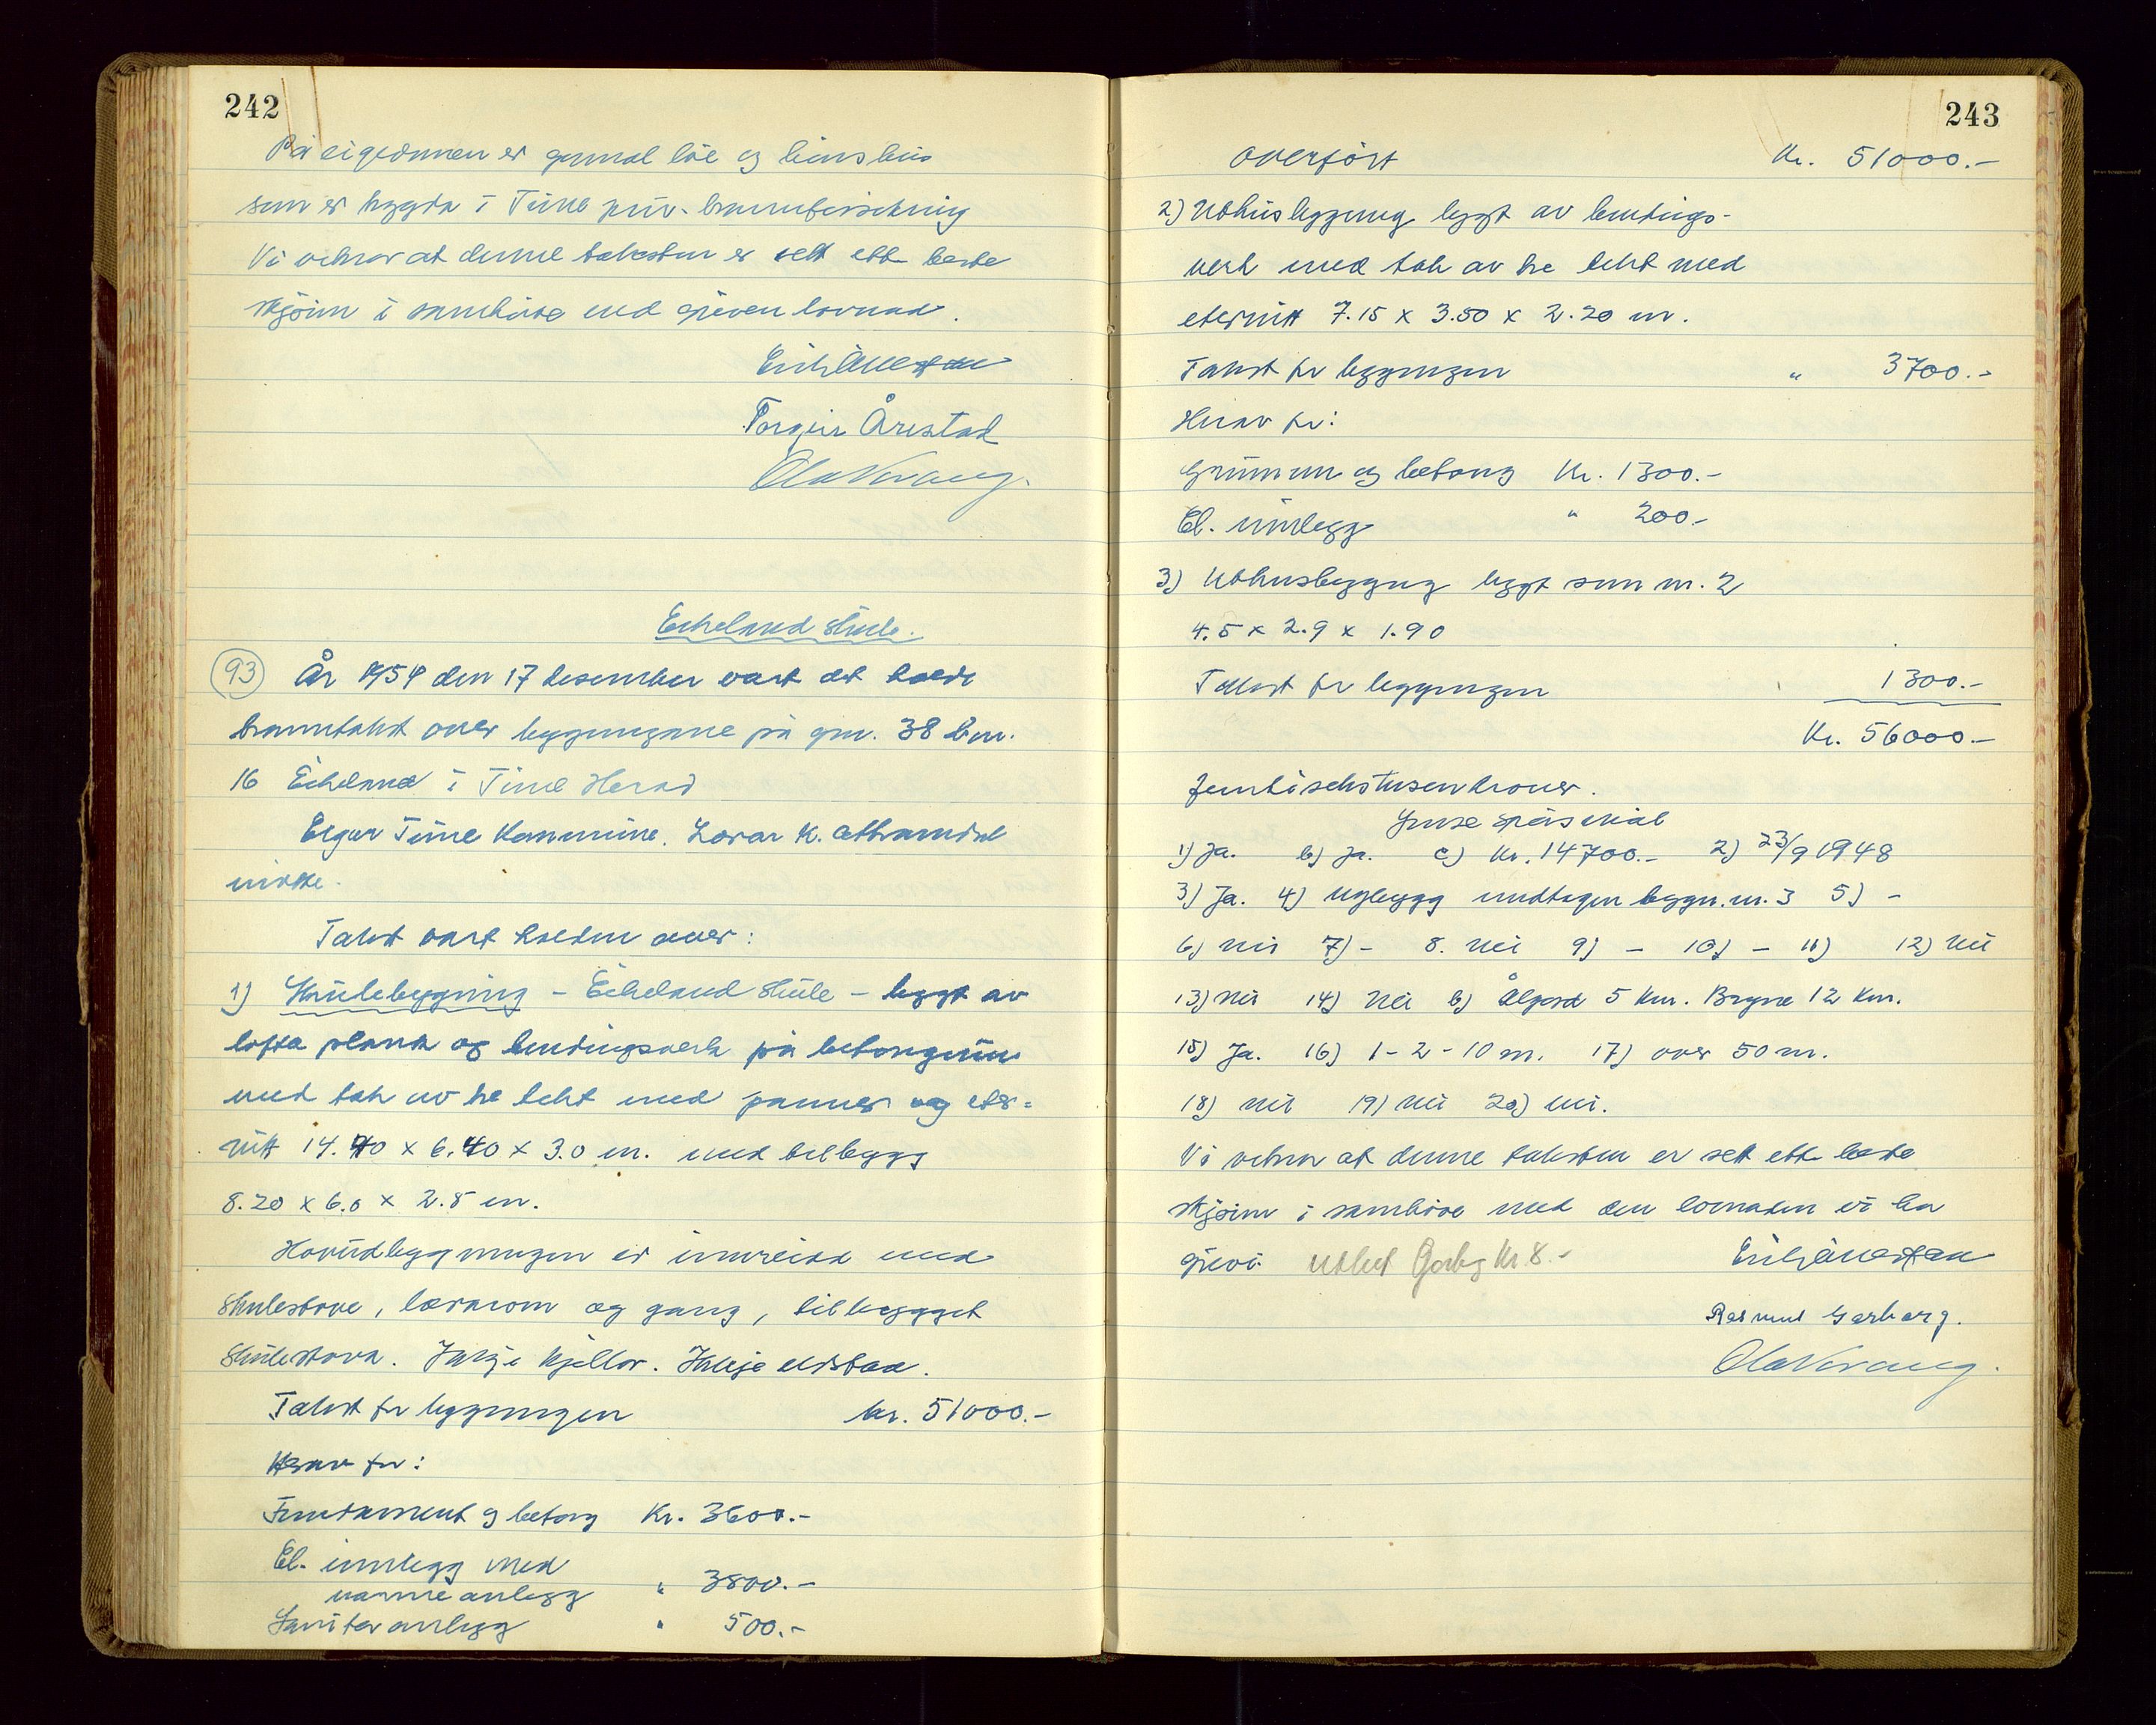 242
På eigedomen er gamal löe og hönshus
som er trygda i Time priv. brannforsikring
Vi vitnar at denne taksten er sett ette beste
skjönn i samhöve med gjeven lovnad.
Torgeir Årestad
Ola Vevang.
Eikeland skule.
93 År 1954 den 17 desember vart det halde
branntakst over bygningane på gnr. 38 bnr.
16 Eikeland i Time Herad
Eigar Time Kommune. Lærar K.
møtte.
Takst vart halden over:
1) Skulebygning - Eikeland skule - bygt av
lafta plank og bindingsverk på betongmur
med tak av tre tekt med panner og eter-
nitt 14.40 x 6.40 x 3.0 m. med tilbygg
8.20 x 6.0 x 2.8 m.
Hovudbygningen er innreidd med
skulestove, lærarrom og gang, tilbygget
skulestova. Ikkje kjellar. Ikkje eldstad.
Takst for bygningen kr. 51000.-
Herav for:
Fundament og betong Kr. 3600.-
El. innlegg med
varmeanlegg " 3800.-
Saniteranlegg " 500.-
243
Overfört Kr. 51000.-
2) Uthusbygning bygt av bindings-
verk med tak av tre tekt med
eternitt 7.15 x 3.50 x 2.20 m.
Takst for bygningen " 3700.-
Herav for:
Grunnmur og betong Kr. 1300.-
El. innlegg " 200.-
3) Uthusbygning bygt som nr. 2
4.5 x 2.9 x 1.90
Takst for bygningen 1300.-
Kr. 56000.-
Femtisekstusen kroner.
1) Ja. b) Ja. c) Kr. 14700.- 2) 23/9 1948
3) Ja. 4) Nybygg undtagen bygn. nr. 3 5) -
6) Nei 7) - 8. Nei 9) - 10) - 11) 12) Nei
13) Nei 14) Nei b) Ålgård 5 km. Bryne 12 km.
15) Ja. 16) 1-2-10 m. 17) over 50 m.
18) Nei 19) Nei 20) Nei.
Vi vitnar at denne taksten er sett ette beste
skjönn i samhöve med den lovnaden vi ha
gjeve. Utbet Garbg Kr 8.-
Rasmus Garborg.
Ola Vevang.